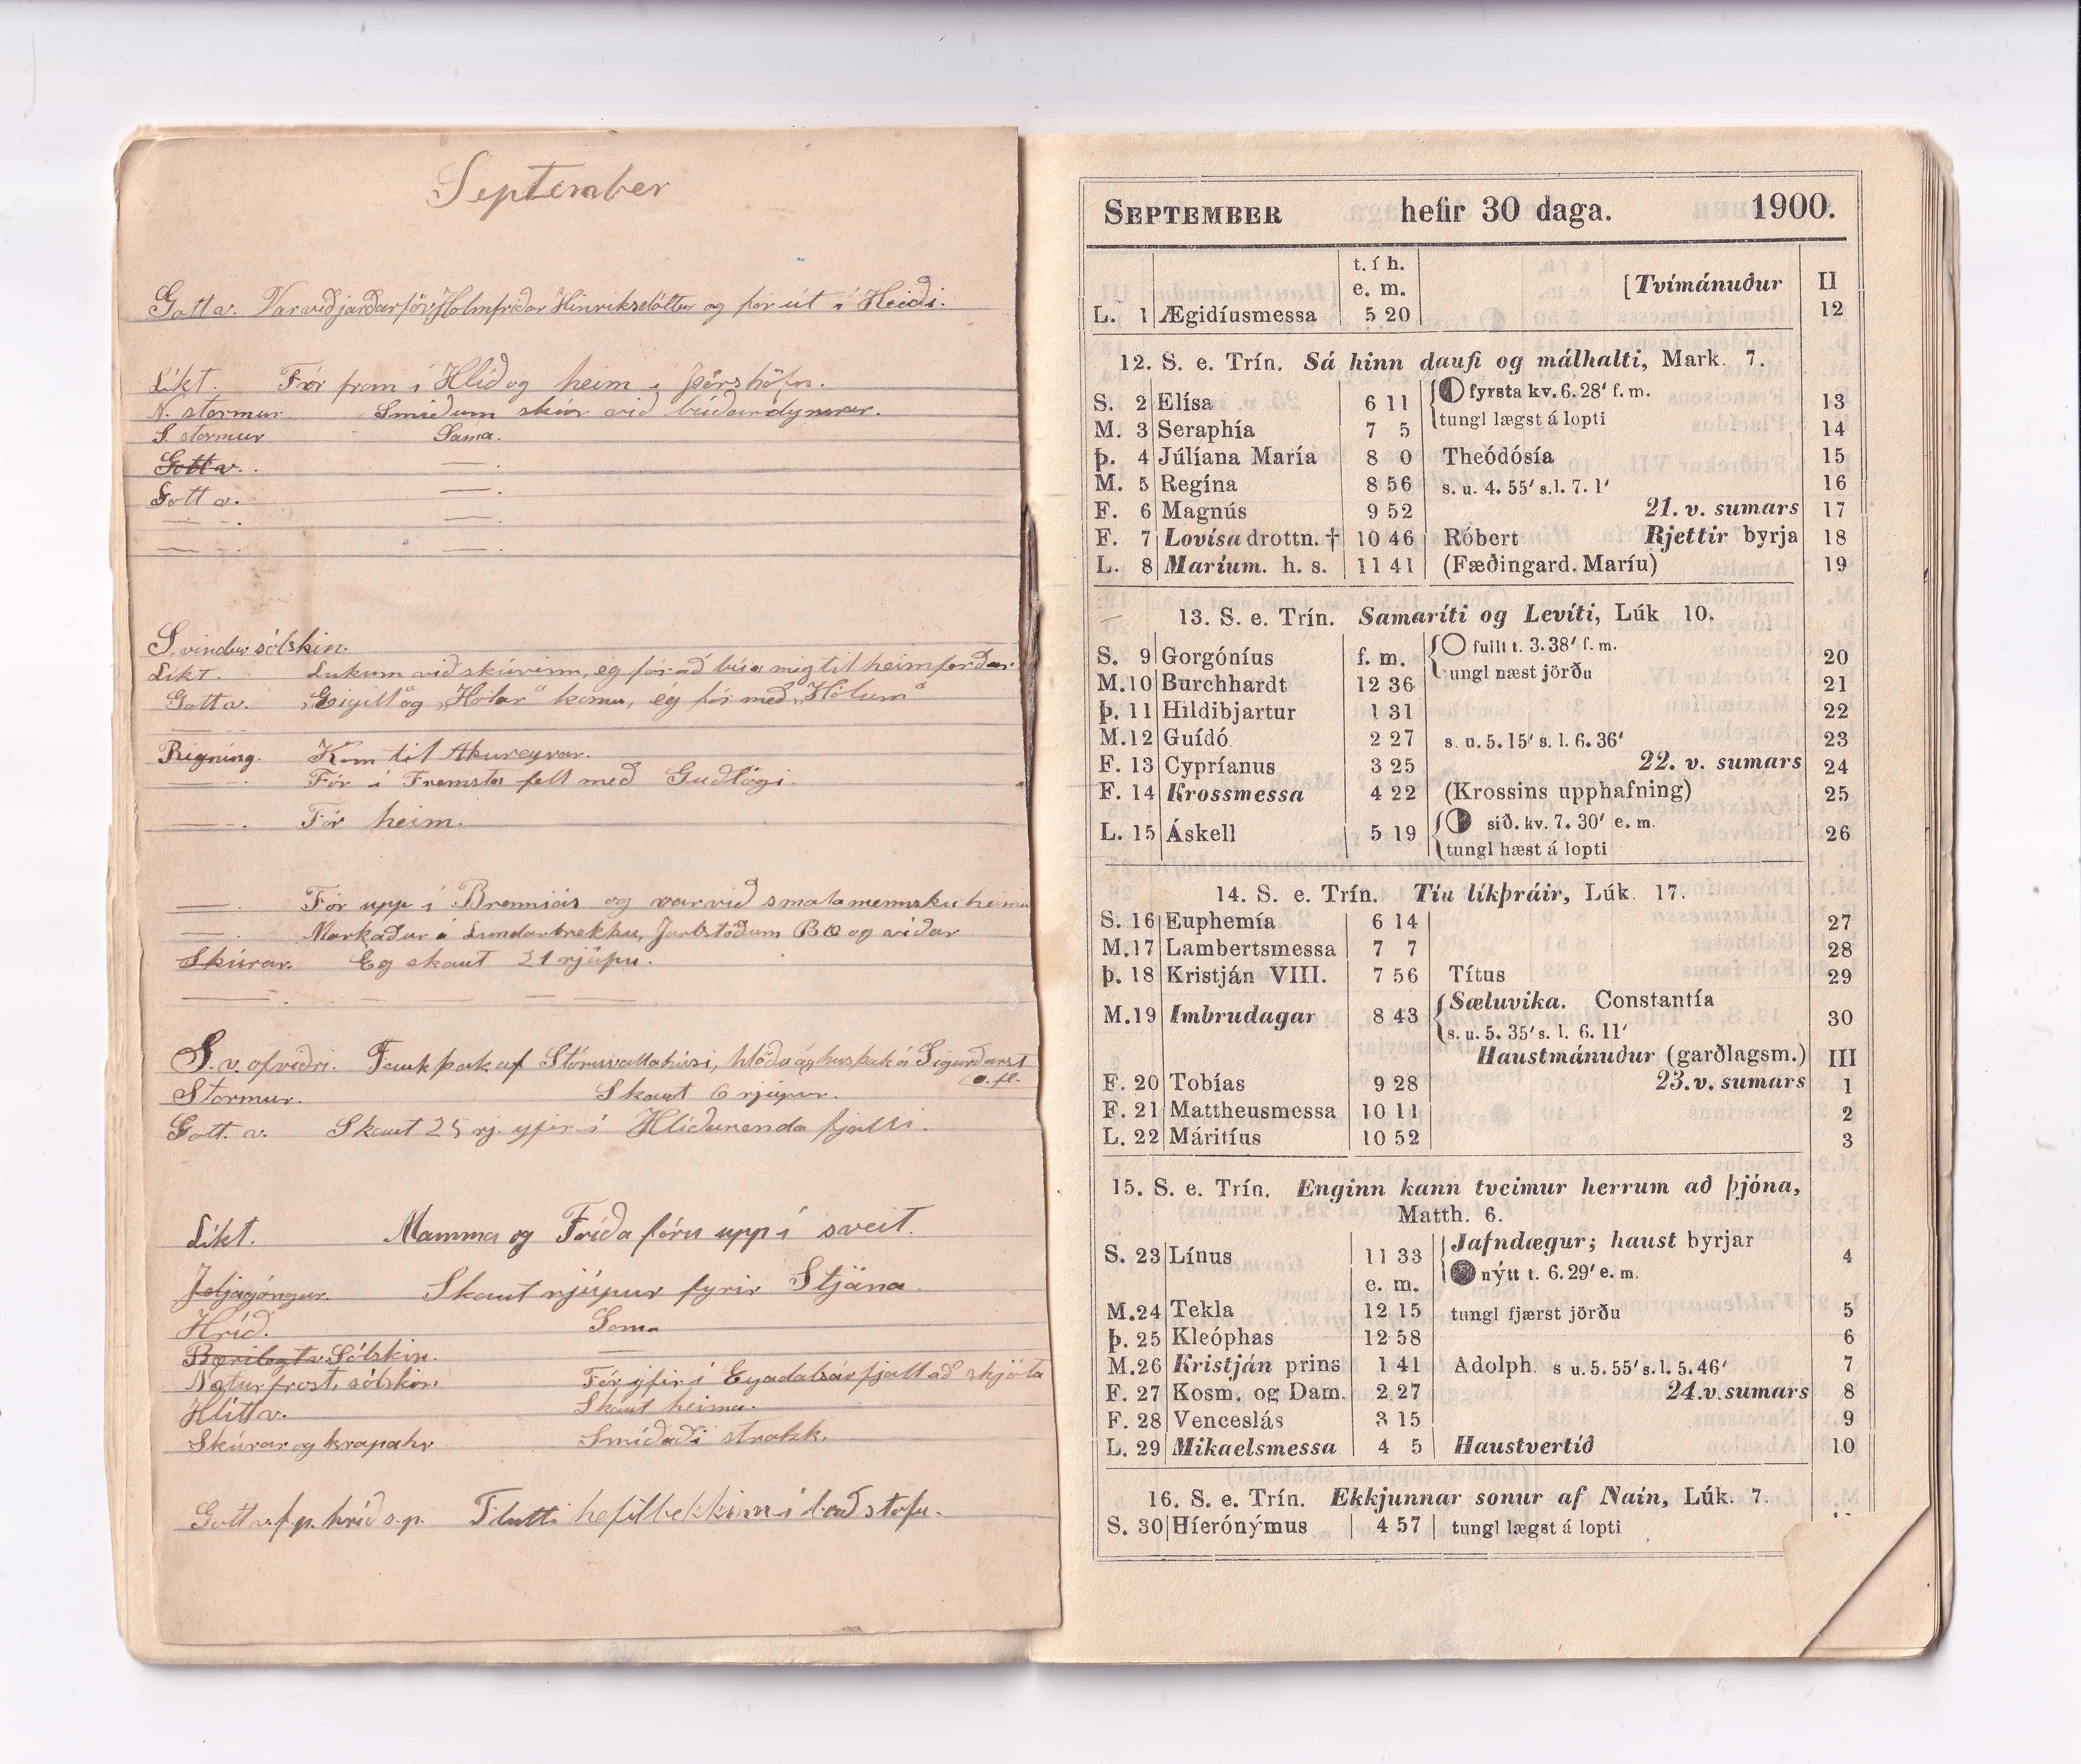 September
Gott v. Var við jarðarför Holmfríðar Hinriksdóttur og fór út í Heiði.
Líkt. Fór fram í Hlíð og heim í Þórshöfn.
N. stormur Smiðum skúr við búðardyrnar.
S. stormur Sama.
Gott v. —.
Gott v. —.
— . —.
— . —.
S. vindur sólskin.
Líkt. Lukum við skúrinn, eg fór að búa mig til heimferðar.
Gott v. „Eigill“ og „Hólar“ komu, eg fór með „Hólum“
Rigning. Kom til Akureyrar.
—. Fór í Fremsta fell með Guðlögi.
—. Fór heim.
—. Fór upp í Brenniás og var við smalamennsku heima
—. Markaður á Lundarbrekku, Jarlstöðum Bæ og víðar
Skúrar. Eg skaut 21 rjúpu.
—. — — —
S. v. ofviðri. Fauk þak af Stóruvallahúsi, hlöðu og husþak á Sigurðarst
o. fl.
Stormur. Skaut 6 rjúpur.
Gott. v. Skaut 25 rj. yfir í Hlíðarenda fjalli.
Líkt. Mamma og Fríða fóru upp í sveit.
Jeljagöngur. Skaut rjúpur fyrir Stjána.
Hríð. Sama
Bærilegt v. Sólskin. —
Næturfrost, sólskin Fór yfir í Eyadalsárfjall að skjóta
Hlítt v. Skaut heima.
Skúrar og krapahr. Smíðaði strokk.
Gott v. f.p. hríð s.p. Flutti hefilbekkinn í baðstofu.
SEPTEMBER hefir 30 daga. 1900.
t. í h.
e. m. [Tvímánuður II
L. 1 Ægidíusmessa 5 20 12
12. S. e. Trín. Sá hinn daufi og málhalti, Mark. 7.
S. 2 Elísa 6 11 fyrsta kv. 6. 28′ f. m. 13
tungl lægst á lopti
M. 3 Seraphía 7 5 14
Þ. 4 Júlíana María 8 0 Theódósía 15
M. 5 Regína 8 56 s. u. 4. 55′ s. l. 7. 1′ 16
F. 6 Magnús 9 52 21. v. sumars 17
F. 7 Lovísa drottn. † 10 46 Róbert Rjettir byrja 18
L. 8 Maríum. h. s. 11 41 (Fæðingard. Maríu) 19
13. S. e. Trín. Samaríti og Levíti, Lúk 10.
S. 9 Gorgóníus f. m. fullt t. 3. 38′ f. m. 20
tungl næst jörðu
M. 10 Burchhardt 12 36 21
Þ. 11 Hildibjartur 1 31 22
M. 12 Guídó 2 27 s. u. 5. 15′ s. l. 6. 36′ 23
F. 13 Cypríanus 3 25 22. v. sumars 24
F. 14 Krossmessa 4 22 (Krossins upphafning) 25
L. 15 Áskell 5 19 síð. kv. 7. 30′ e. m. 26
tungl hæst á lopti
14. S. e. Trín. Tíu líkþráir, Lúk. 17.
S. 16 Euphemía 6 14 27
M. 17 Lambertsmessa 7 7 28
Þ. 18 Kristján VIII. 7 56 Títus 29
M. 19 Imbrudagar 8 43 Sæluvika. Constantía 30
s. u. 5. 35′ s. l. 6. 11′
Haustmánuður (garðlagsm.) III
F. 20 Tobías 9 28 23. v. sumars 1
F. 21 Mattheusmessa 10 11 2
L. 22 Máritíus 10 52 3
15. S. e. Trín. Enginn kann tveimur herrum að þjóna,
Matth. 6.
S. 23 Línus 11 33 Jafndægur; haust byrjar 4
e. m. nýtt t. 6. 29′ e. m.
M. 24 Tekla 12 15 tungl fjærst jörðu 5
Þ. 25 Kleóphas 12 58 6
M. 26 Kristján prins 1 41 Adolph. s u. 5. 55′ s. l. 5. 46′ 7
F. 27 Kosm. og Dam. 2 27 24. v. sumars 8
F. 28 Venceslás 3 15 9
L. 29 Mikaelsmessa 4 5 Haustvertíð 10
16. S. e. Trín. Ekkjunnar sonur af Naín, Lúk. 7.
S. 30 Híerónýmus 4 57 tungl lægst á lopti